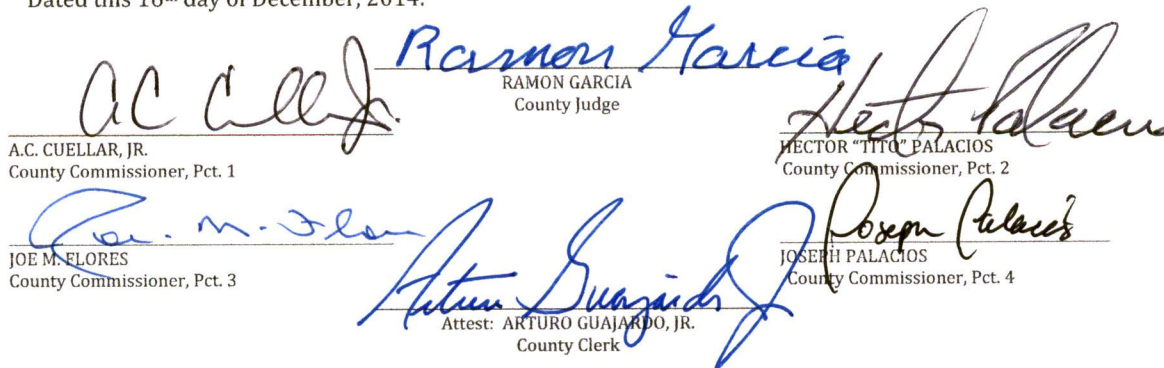 Dated this 16th day of December, 2014.
Ramon Garcia
RAMON GARCIA
County Judge
AC Cuellar Jr.
A.C. CUELLAR, JR.
County Commissioner, Pct. 1
Hector Palacios
HECTOR "TITO" PALACIOS
County Commissioner, Pct. 2
Joe M. Flores
JOE M. FLORES
County Commissioner, Pct. 3
Joseph Palacios
JOSEPH PALACIOS
County Commissioner, Pct. 4
Arturo Guajardo Jr
Attest: ARTURO GUAJARDO, JR.
County Clerk